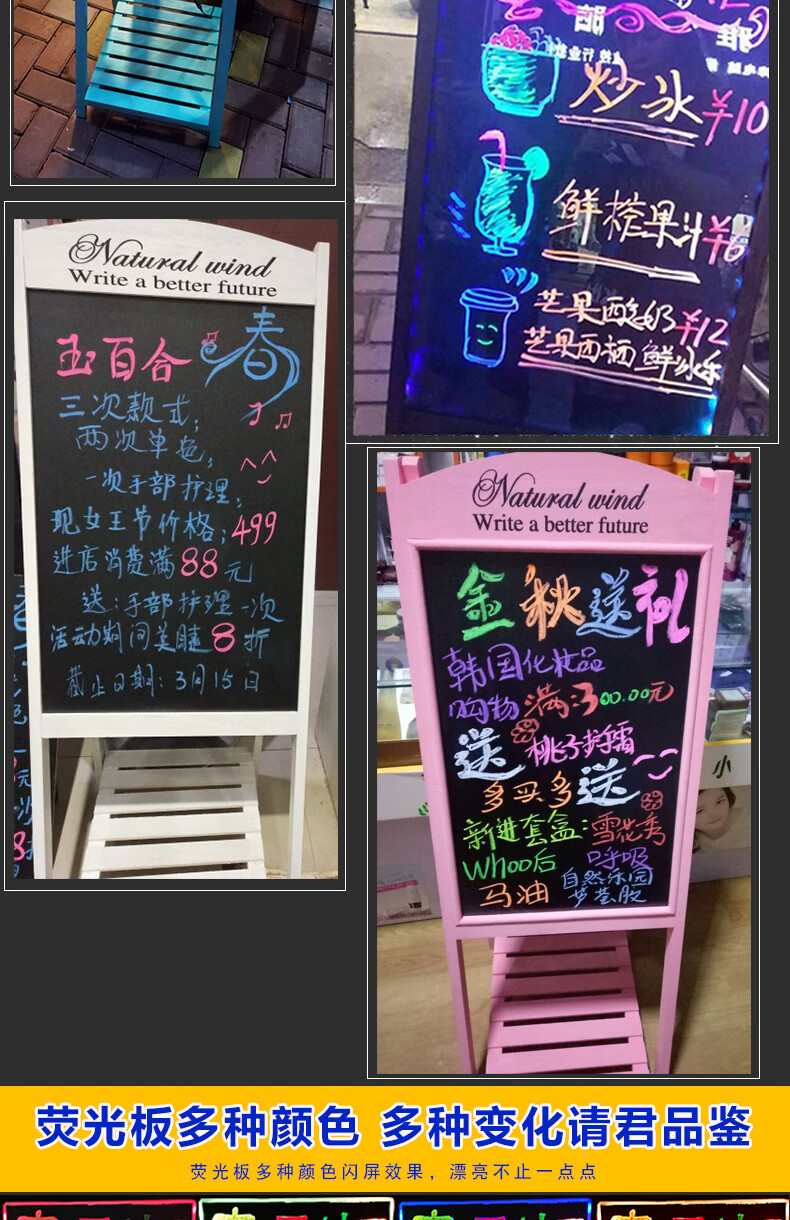 炒冰¥10
鲜榨果汁¥6
芒果酸奶¥12
芒果西柚 鲜冰乐
Natural wind
Write a better future
玉百合 春
三次款式;
两次单色;
一次手部护理;
现女王节价格;499
进店消费满88元
送:手部护理一次
活动期间美睫8折
截止日期:3月15日
Natural wind
Write a better future
金秋送礼
韩国化妆品
购物满:300.00元
送桃子护手霜
多买多送
新进套盒:雪花秀
Whoo后 呼吸
马油 自然乐园
芦荟胶
小
荧光板多种颜色 多种变化请君品鉴
荧光板多种颜色闪屏效果，漂亮不止一点点